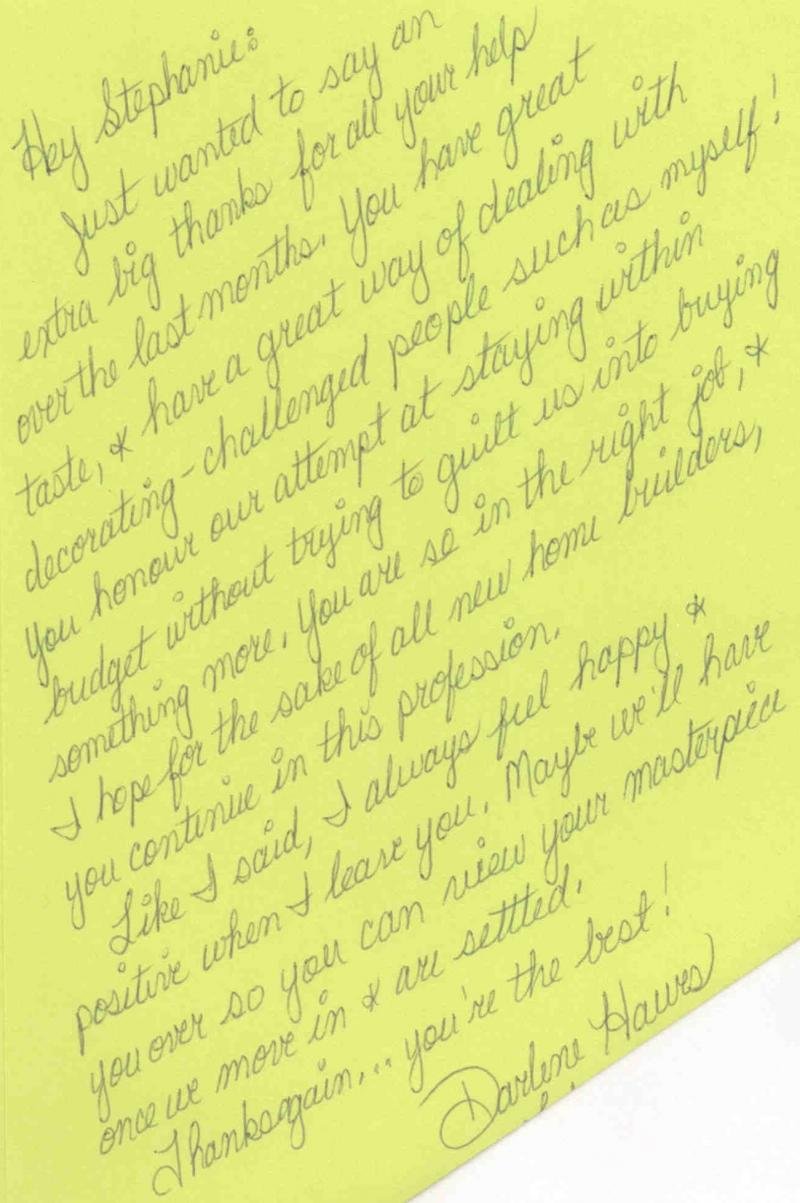 Hey Stephanie:
Just wanted to say an
extra big thanks for all your help
over the last months. You have great
taste, & have a great way of dealing with
decorating-challenged people such as myself!
You honour our attempt at staying within
budget without trying to guilt us into buying
something more. You are so in the right job, &
I hope for the sake of all new home builders,
you continue in this profession.
Like I said, I always feel happy &
positive when I leave you. Maybe we'll have
you over so you can view your masterpiece
once we move in & are settled.
Thanks again... you're the best!
Darlene Hawes